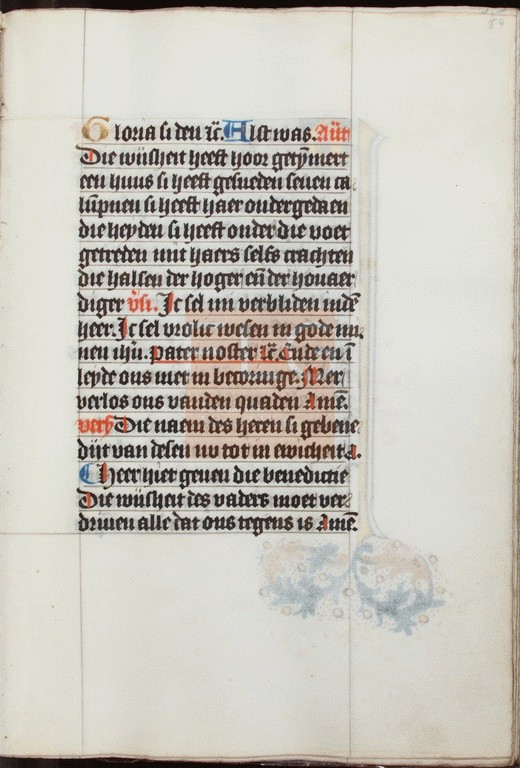 Gloria si den ꝛc̄. Alst was. Ant̄
Die wijsheit heeft hoor getȳmert
een huus si heeft gesneden seuen ca
lūpnen si heeft haer ondergedaen
die heyden si heeft onder die voet
getreden mit haers selfs crachten
die halsen der hoger en̄ der houaer
diger v̄s. Ic sel mi verbliden indē
heer. Ic sel vrolic wesen in gode mi
nen ihū. Pater noster ꝛc̄. Ende en ī
leyde ons niet in becoringe. Mer
verlos ons vanden quaden Amē.
vers Die naem des heren si gebene
dijt van desen nv tot in ewicheit a.
Heer hier geuen die benedictie
Die wijsheit des vaders moet ver
driuen alle dat ons tegens is Amē.